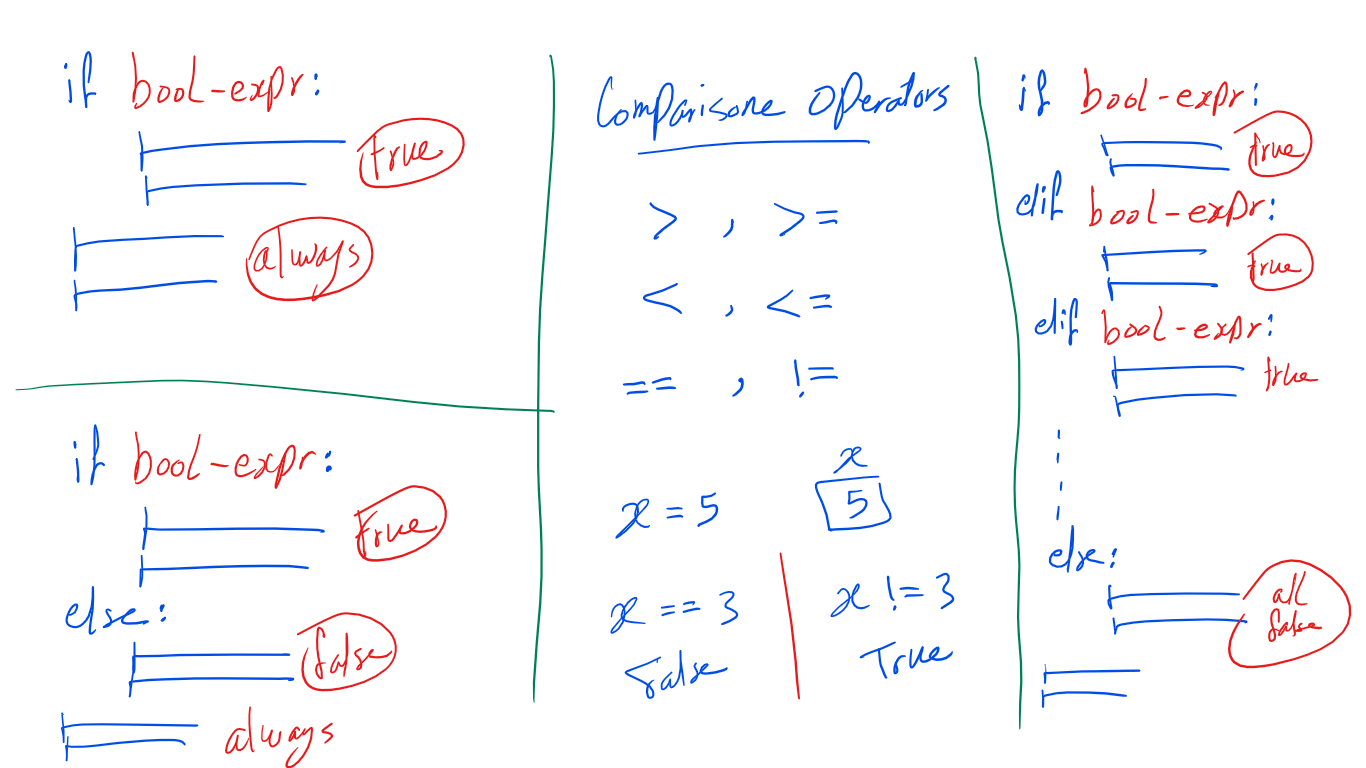 if bool-expr:
true
always
if bool-expr:
true
else:
false
always
Comparisone Operators
> , >=
< , <=
== , !=
x
x = 5 5
x == 3 x != 3
False True
if bool-expr:
true
elif bool-expr:
true
elif bool-expr:
true
else:
all
false